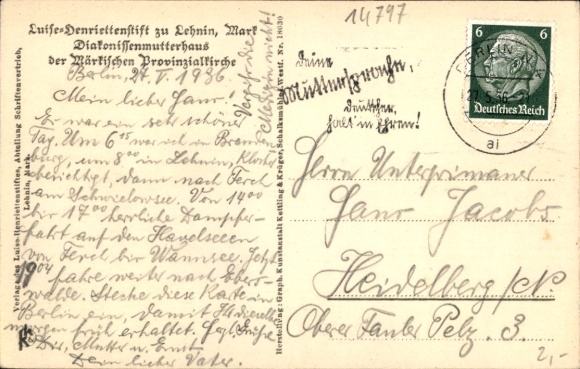 14797
Luise-Henriettenstift zu Lehnin, Mark
Diakonissenmutterhaus
der Märkischen Provinzialkirche
Berlin, 27. V. 1936.
Mein lieber Hans!
Es war ein sehr schöner
Tag. Um 6 15 war ich in Branden-
burg, um 8 00 in Lehnin, Kloster
besichtigt, dann nach Ferch
am Schwielowsee. Von 14 00
bis 17 00 herrliche Dampfer-
fahrt auf den Havelseeen
von Ferch bis Wannsee. Jetzt
19 04 fahre weiter nach Ebers-
walde. Stecke diese Karte in
Berlin ein, damit Ihr dieselbe
morgen früh erhaltet. Hzl. Grüße
Dir, Mutter u. Ernst
Dein lieber Vater.
Vergiß die
Medizin nicht!
Verlag des Luise-Henriettenstiftes, Abteilung Schriftenvertrieb,
Lehnin, Mark.
Herstellung: Graph. Kunstanstalt Kettling & Krüger, Schalksmühle Westf. Nr. 18630
Deine
Muttersprache,
Deutscher,
halt in Ehren!
6 6
Deutsches Reich
BERLIN
27.5.36
ai
Herrn Unterprimaner
Hans Jacobs
Heidelberg/N
Oberer Fauler Pelz. 3.
2,-